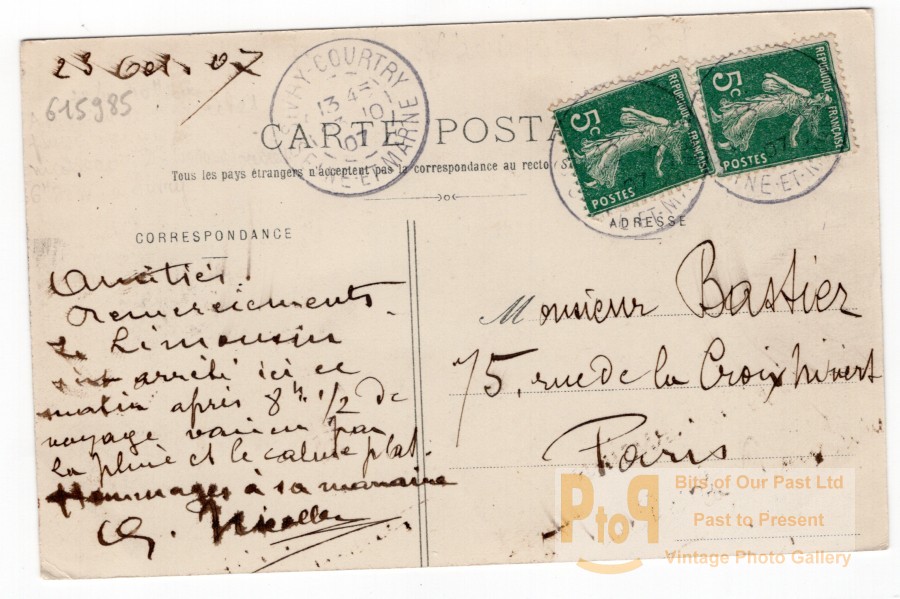 23 Oct. 07
615985
SIVRY-COURTRY
13 45
10
07
SEINE-ET-MARNE
CARTE POSTA
Tous les pays étrangers n'acceptent pas la correspondance au recto
5c REPUBLIQUE FRANÇAISE POSTES
5c REPUBLIQUE FRANÇAISE POSTES
CORRESPONDANCE
ADRESSE
Amitiés.
Remerciements.
Le Limousin
est arrêté ici ce
matin après 8h 1/2 de
voyage vaincu par
la pluie et le calme plat.
Hommages à sa marraine
Ch. Nicolle
Monsieur Bastier
75, rue de la Croix Nivert
Paris
PtoP
Bits of Our Past Ltd
Past to Present
Vintage Photo Gallery